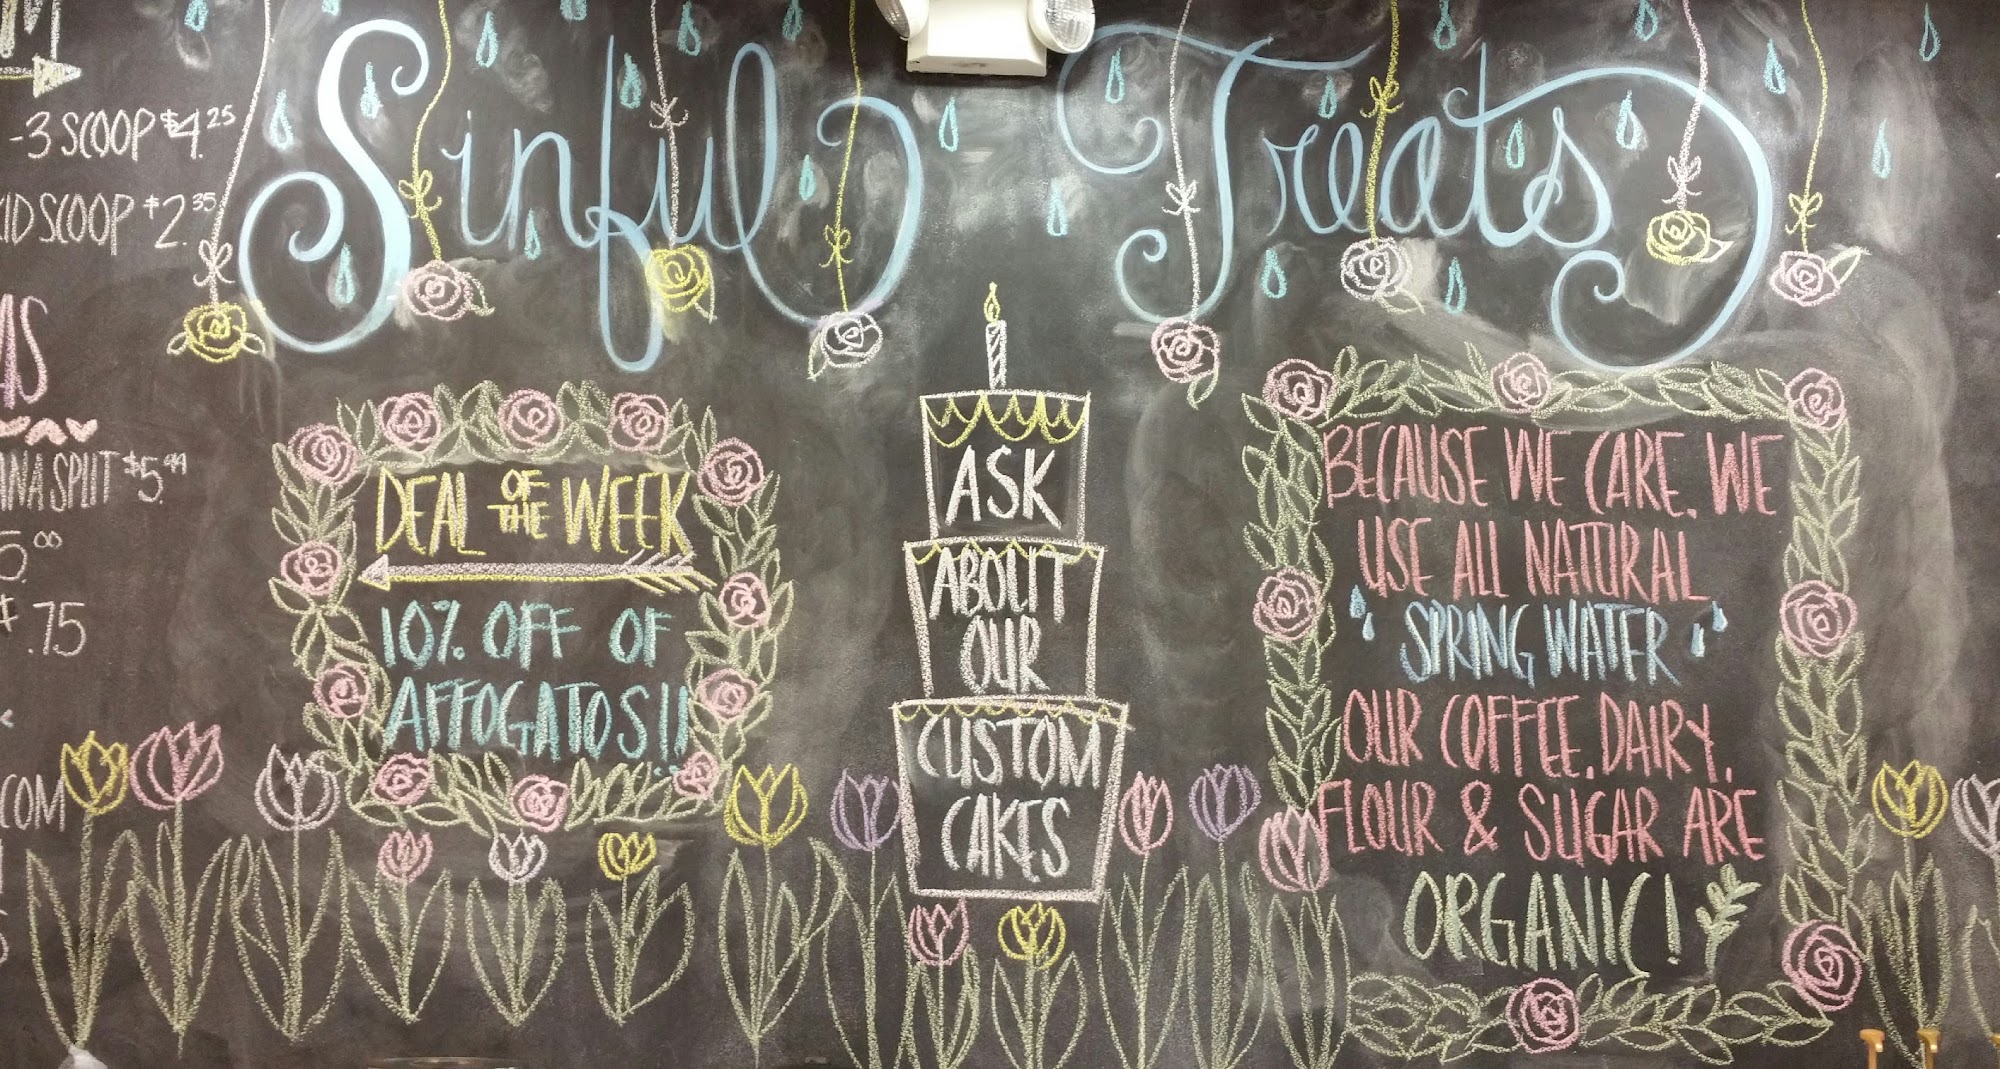 Sinful Treats
-3 SCOOP $4.25
SCOOP $2.35
SPLIT $5.99
5.00
$.75
.COM
DEAL OF THE WEEK
10% OFF OF
AFFOGATOS!!
ASK
ABOUT
OUR
CUSTOM
CAKES
BECAUSE WE CARE. WE
USE ALL NATURAL
SPRING WATER
OUR COFFEE, DAIRY,
FLOUR & SUGAR ARE
ORGANIC!